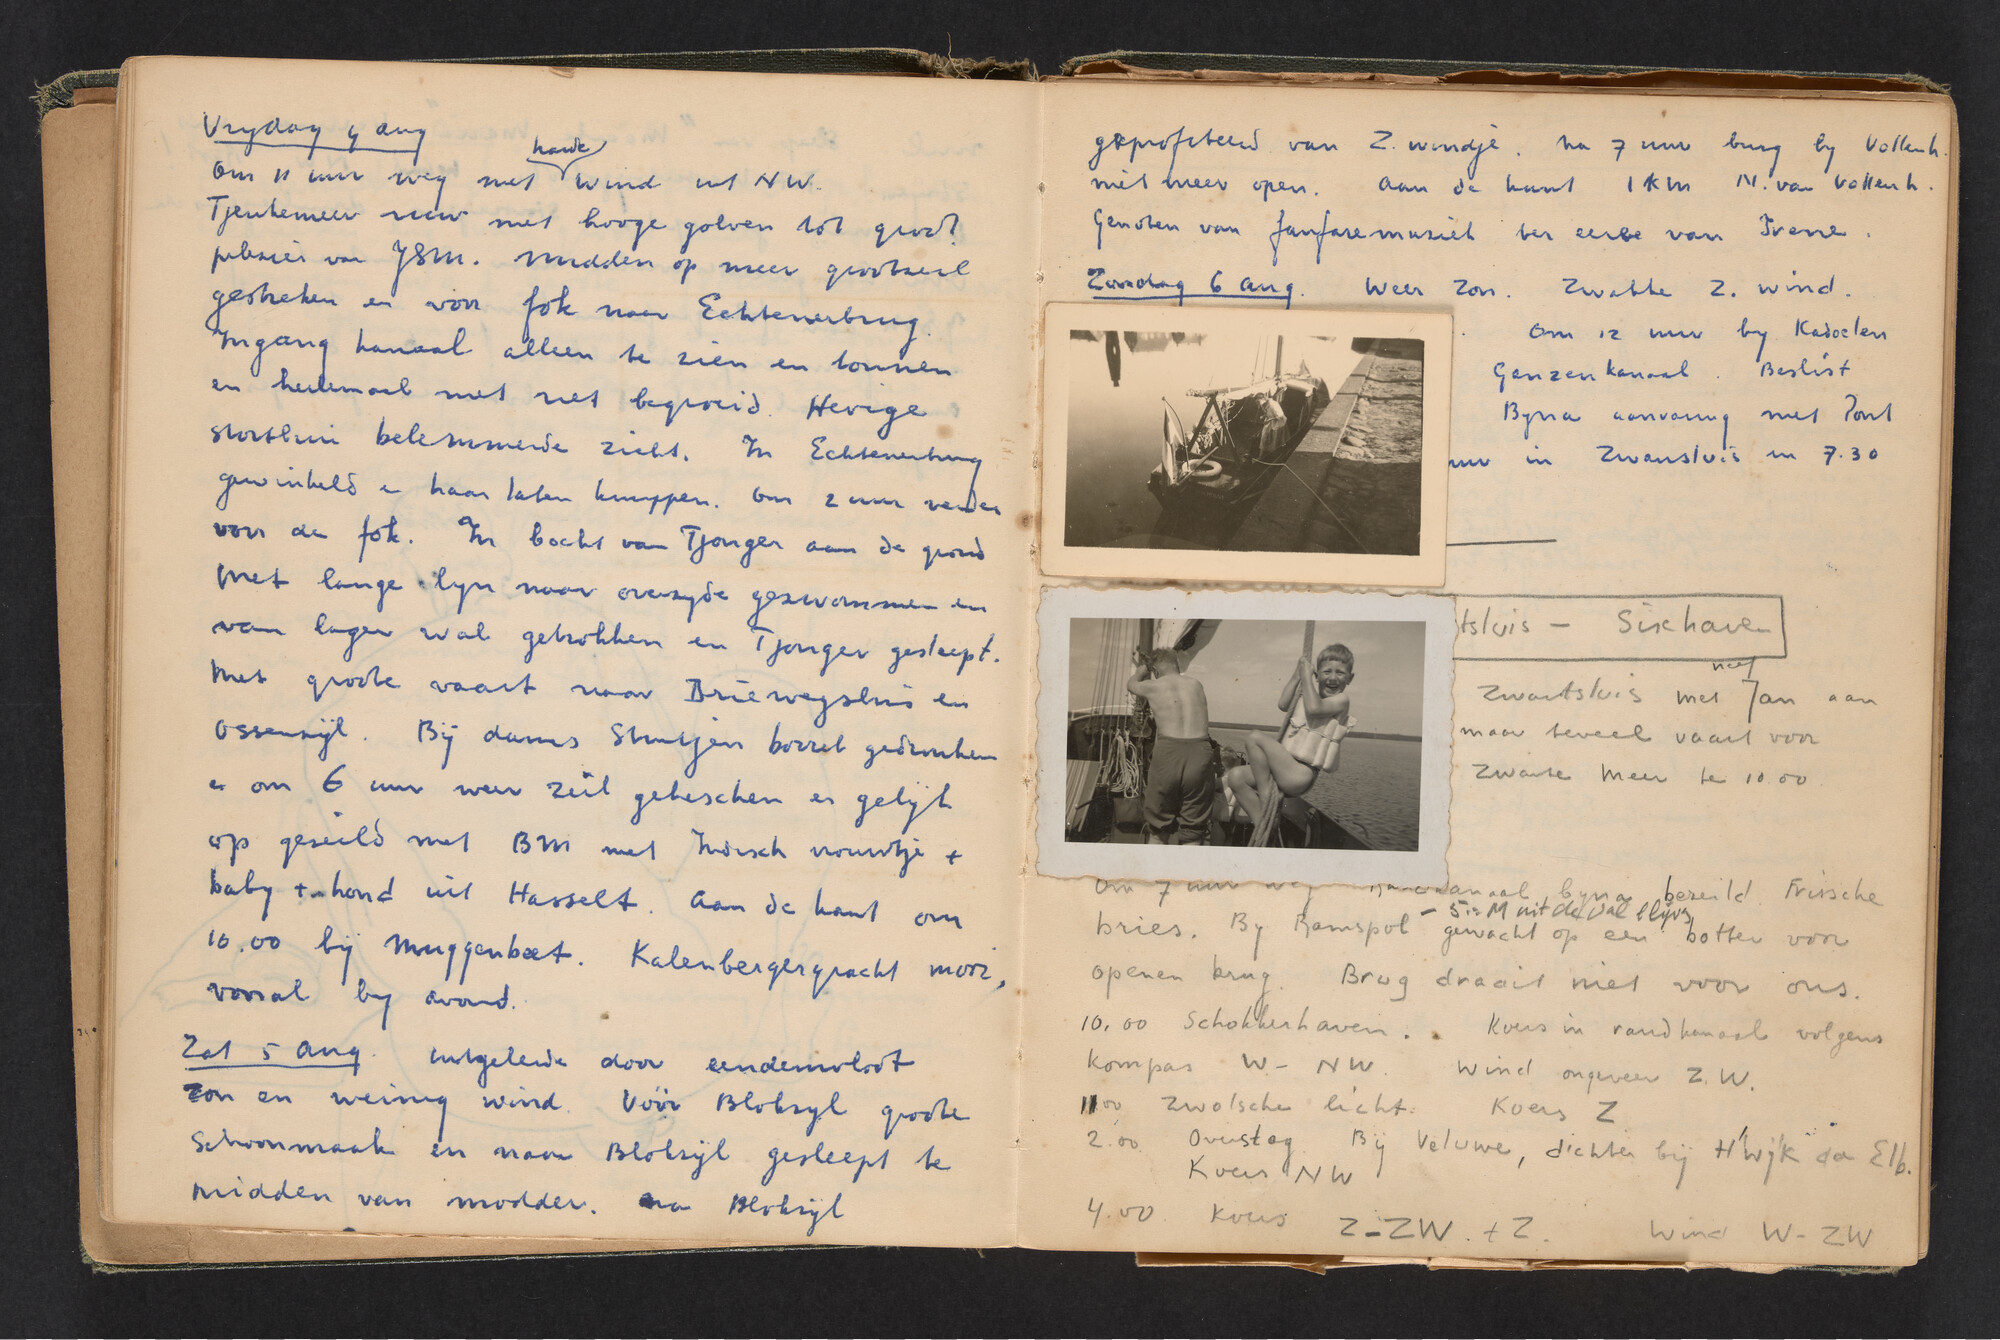 Vrydag 4 aug
harde
Om 11 uur weg met wind uit NW.
Tjeukemeer ruw met hooge golven tot groot
plezier van YSM. Midden op meer grootzeil
gestreken en voor fok naar Echtenerbrug.
Ingang kanaal alleen te zien en tonnen
en helemaal met riet begroeid. Hevige
stortbui belemmerde zicht. In Echtenerbrug
gewinkeld en haar laten knippen. Om 2 uur verder
voor de fok. In bocht van Tjonger aan de grond
Met lange lyn naar overzyde gezwommen en
van lager wal getrokken en Tjonger gesleept.
Met groote vaart naar Driewegsluis en
Ossenzijl. Bij dames Stuutjen borrel gedronken
en om 6 uur weer zeil geheschen en gelijk
op gezeild met BM met Indisch vrouwtje +
baby + hond uit Hasselt. Aan de kant om
10.00 bij Muggenbeet. Kalenbergergracht mooi,
vooral by avond.
Zat 5 aug. uitgeleide door eendenvloot
Zon en weinig wind. Vóór Blokzyl groote
schoonmaak en naar Blokzyl gesleept te
midden van modder. Na Blokzyl
geprofiteerd van Z. windje. Na 7 uur brug by Vollenh.
niet meer open. Aan de kant 1 km N. van Vollenh.
Genoten van fanfaremuziek ter eere van Irene.
Zondag 6 aug. Weer zon. Zwakke Z. wind.
Om 12 uur by Kadoelen
Ganzenkanaal. Beslist
Byna aanvaring met Pont
uur in Zwartsluis en 7.30
tsluis - Sixhaven
neef
Zwartsluis met Jan aan
maar teveel vaart voor
Zwarte Meer te 10.00
Om 7 uur weg kanaal byna bezeild. Frissche
bries. By Ramspol gewacht op een botter voor
openen brug. Brug draait niet voor ons.
10.00 Schokkerhaven. Koers in randkanaal volgens
kompas W-NW. Wind ongeveer Z.W.
11.00 Zwolsche licht. Koers Z
2.00 Overstag Bij Veluwe, dichter bij H'wijk dan Elb.
Koers NW
4.00 Koers Z-ZW. + Z. Wind W-ZW